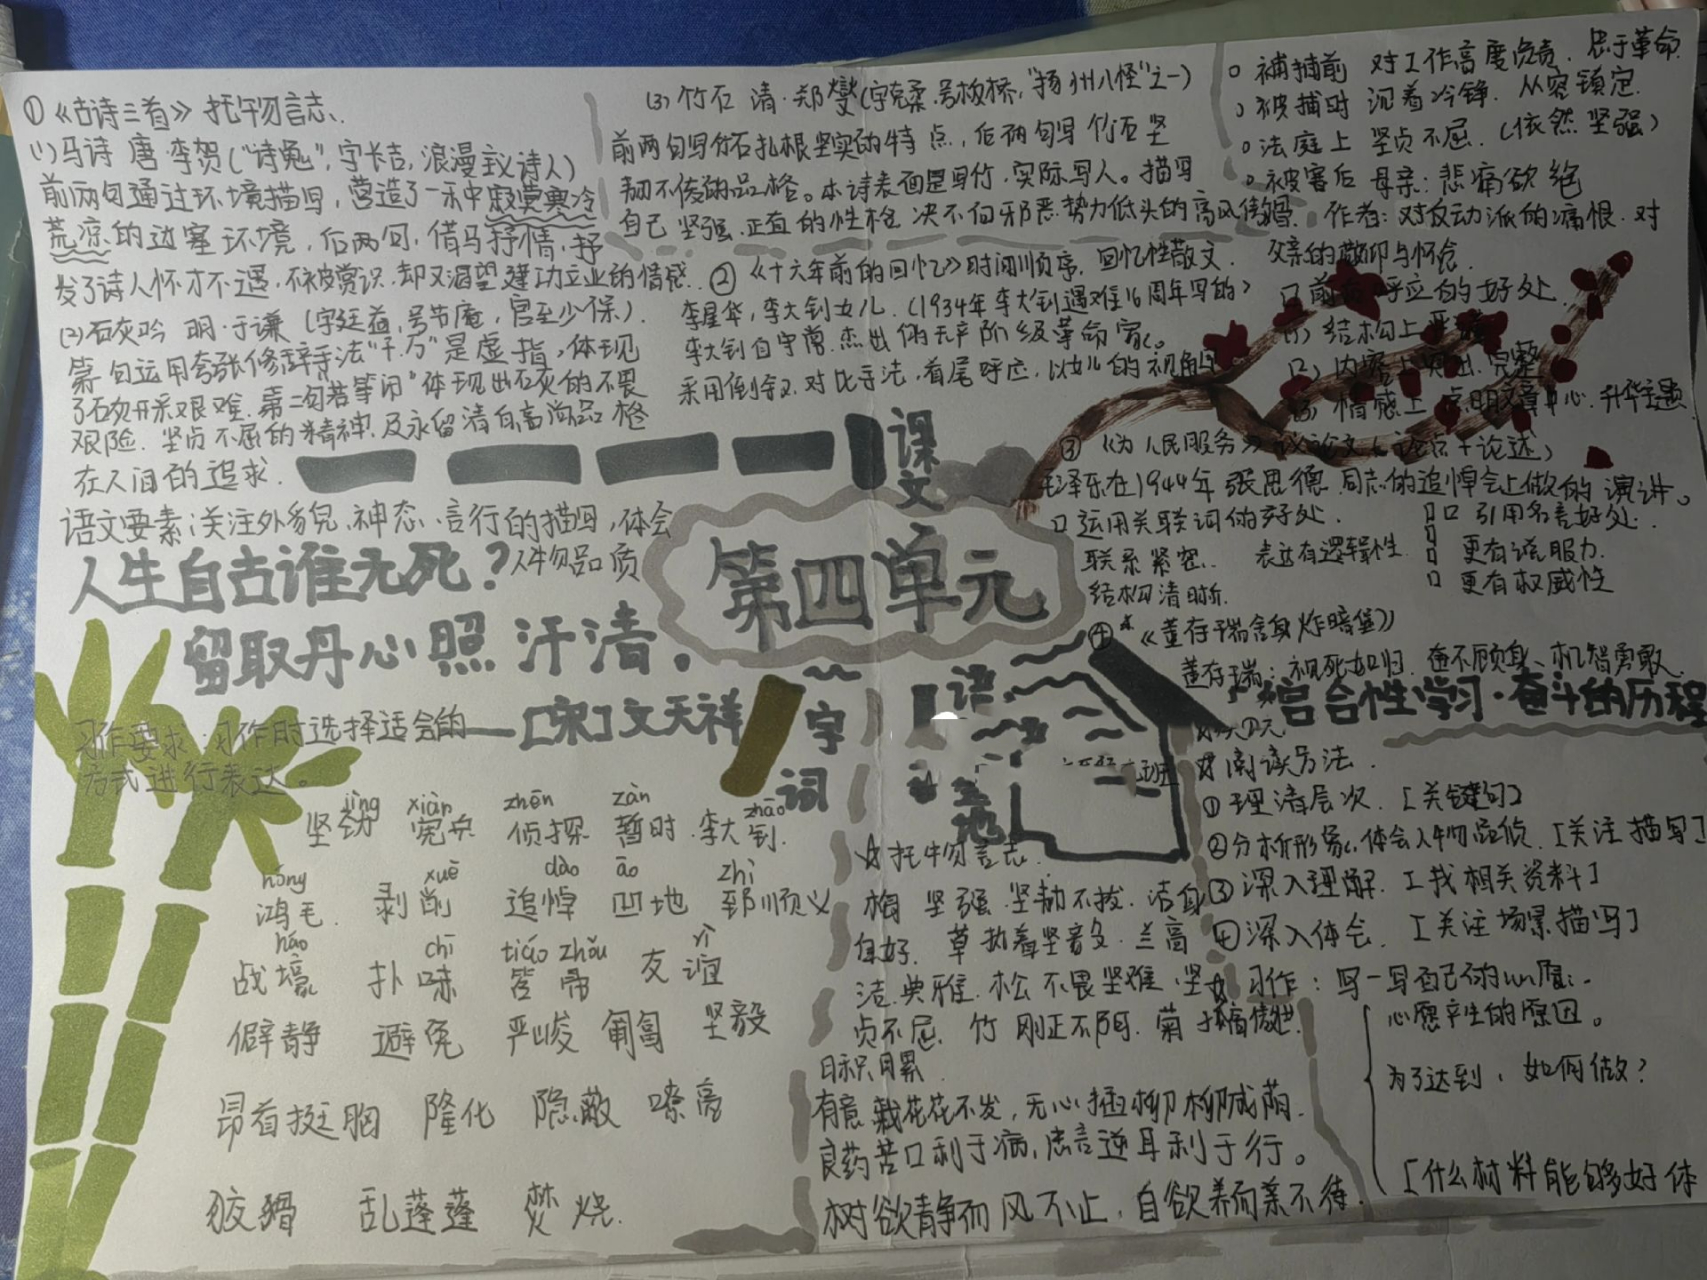 ①《古诗三首》托物言志、
(1)马诗 唐·李贺("诗鬼",字长吉,浪漫主义诗人)
前两句通过环境描写,营造了一种寂寞寒冷
荒凉的边塞环境,后两句,借马抒情,抒
发了诗人怀才不遇,不被赏识,却又渴望建功立业的情感.
(2)石灰吟 明·于谦(字廷益,号节庵,官至少保).
第一句运用夸张修辞手法"千.万"是虚指,体现
了石灰开采艰难.第二句若等闲"体现出石灰的不畏
艰险.坚贞不屈的精神.及永留清白高尚品格
在人间的追求.
语文要素:关注外貌、神态、言行的描写,体会
人物品质
人生自古谁无死?
留取丹心照汗清。
——[宋]文天祥
习作要求:习作时选择适合的
方式进行表达。
(3)竹石 清·郑燮(字克柔.号板桥,"扬州八怪"之一)
前两句写竹石扎根坚实的特点,后两句写竹石坚
韧不拔的品格。本诗表面是写竹,实际写人。描写
自己坚强.正直的性格 决不向邪恶势力低头的高风傲骨.
②《十六年前的回忆》时间顺序,回忆性散文.
李星华,李大钊女儿.(1934年李大钊遇难16周年写的)
李大钊自守常.杰出的无产阶级革命家。
采用倒叙.对比手法,首尾呼应,以女儿的视角写
被捕前 对工作高度负责.忠于革命
被捕时 沉着冷静.从容镇定.
法庭上 坚贞不屈.(依然坚强)
被害后 母亲:悲痛欲绝
作者:对反动派的痛恨.对
父亲的敬仰与怀念.
前后呼应的好处.
(1)结构上严谨
(2)内容上突出.完整
(3)情感上点明文章中心.升华主题
课文
第四单元
③《为人民服务》议论文(论点+论述)
毛泽东在1944年张思德同志的追悼会上做的演讲。
运用关联词的好处.
联系紧密.
结构清晰.
表达有逻辑性.
引用名言好处.
更有说服力.
更有权威性
④*《董存瑞舍身炸暗堡》
董存瑞:视死如归.奋不顾身、机智勇敢.
字词
jìng xiàn zhēn zàn zhāo
坚劲 宪兵 侦探 暂时.李大钊.
hóng xuē dào āo zhì
鸿毛. 剥削 追悼 凹地 郅顺义
háo chī tiáo zhǒu yì
战壕 扑哧 笤帚 友谊
僻静 避免 严峻 匍匐 坚毅
昂首挺胸 隆化 隐蔽 嘹亮
狡猾 乱蓬蓬 焚烧.
语
地
☆托物言志.
梅 坚强.坚韧不拔.洁身
自好. 草 执着坚毅.兰 高
洁.典雅.松 不畏坚难.坚
贞不屈.竹 刚正不阿.菊
日积月累
有意栽花花不发,无心插柳柳成荫.
良药苦口利于病,忠言逆耳利于行。
树欲静而风不止,自欲养而亲不待.
综合性学习·奋斗的历程
☆阅读方法.
①理清层次.[关键句]
②分析形象,体会人物品质.[关注描写]
③深入理解.[找相关资料]
④深入体会.[关注场景描写]
☆习作:写一写自己的心愿.
心愿产生的原因。
为了达到,如何做?
[什么材料能够好体